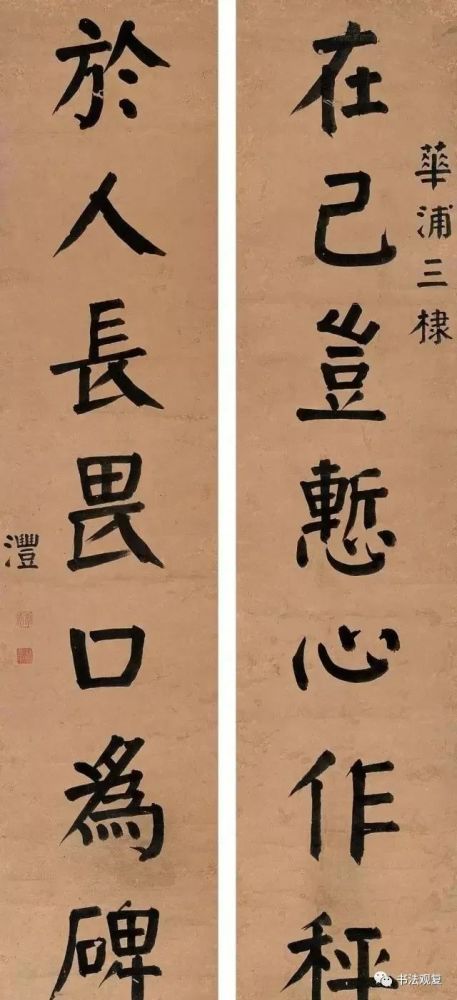 華浦三棣
在己豈慙心作秤
於人長畏口為碑
灃
书法观复